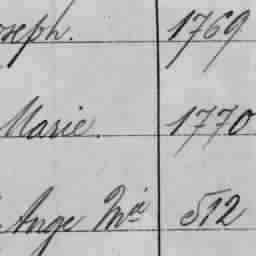 oseph. 1769
Marie. 1770
Ange Mia 512